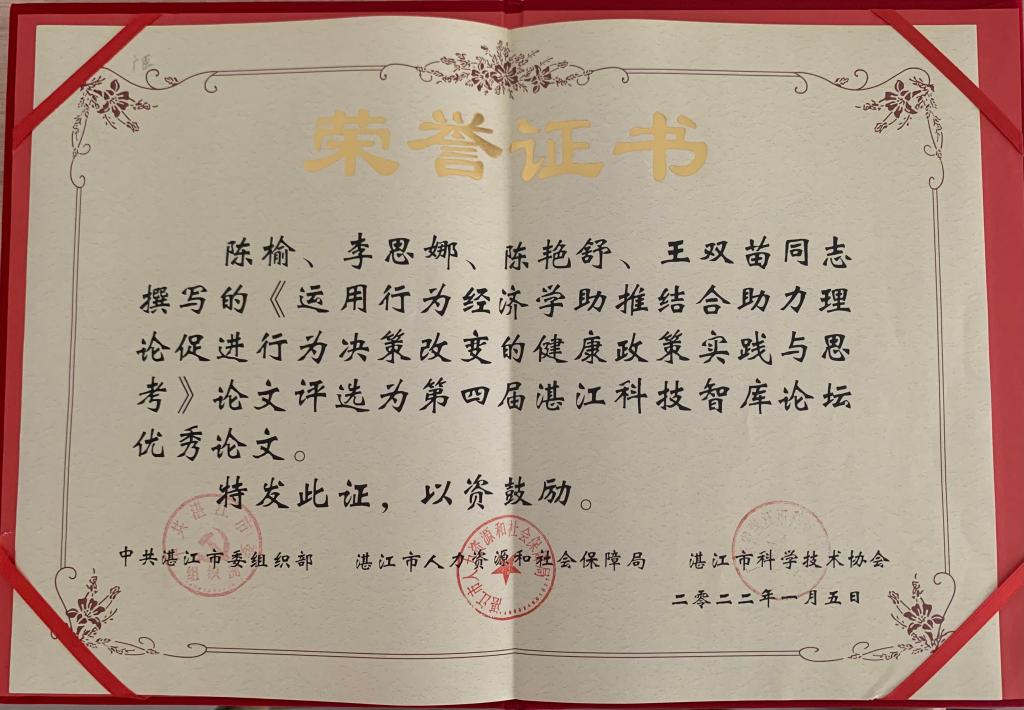 荣誉证书
陈榆、李思娜、陈艳舒、王双苗同志
撰写的《运用行为经济学助推结合助力理
论促进行为决策改变的健康政策实践与思
考》论文评选为第四届湛江科技智库论坛
优秀论文。
特发此证，以资鼓励。
中共湛江市委组织部 湛江市人力资源和社会保障局 湛江市科学技术协会
二零二二年一月五日
湛江市人力资源和社会保障局
组织部